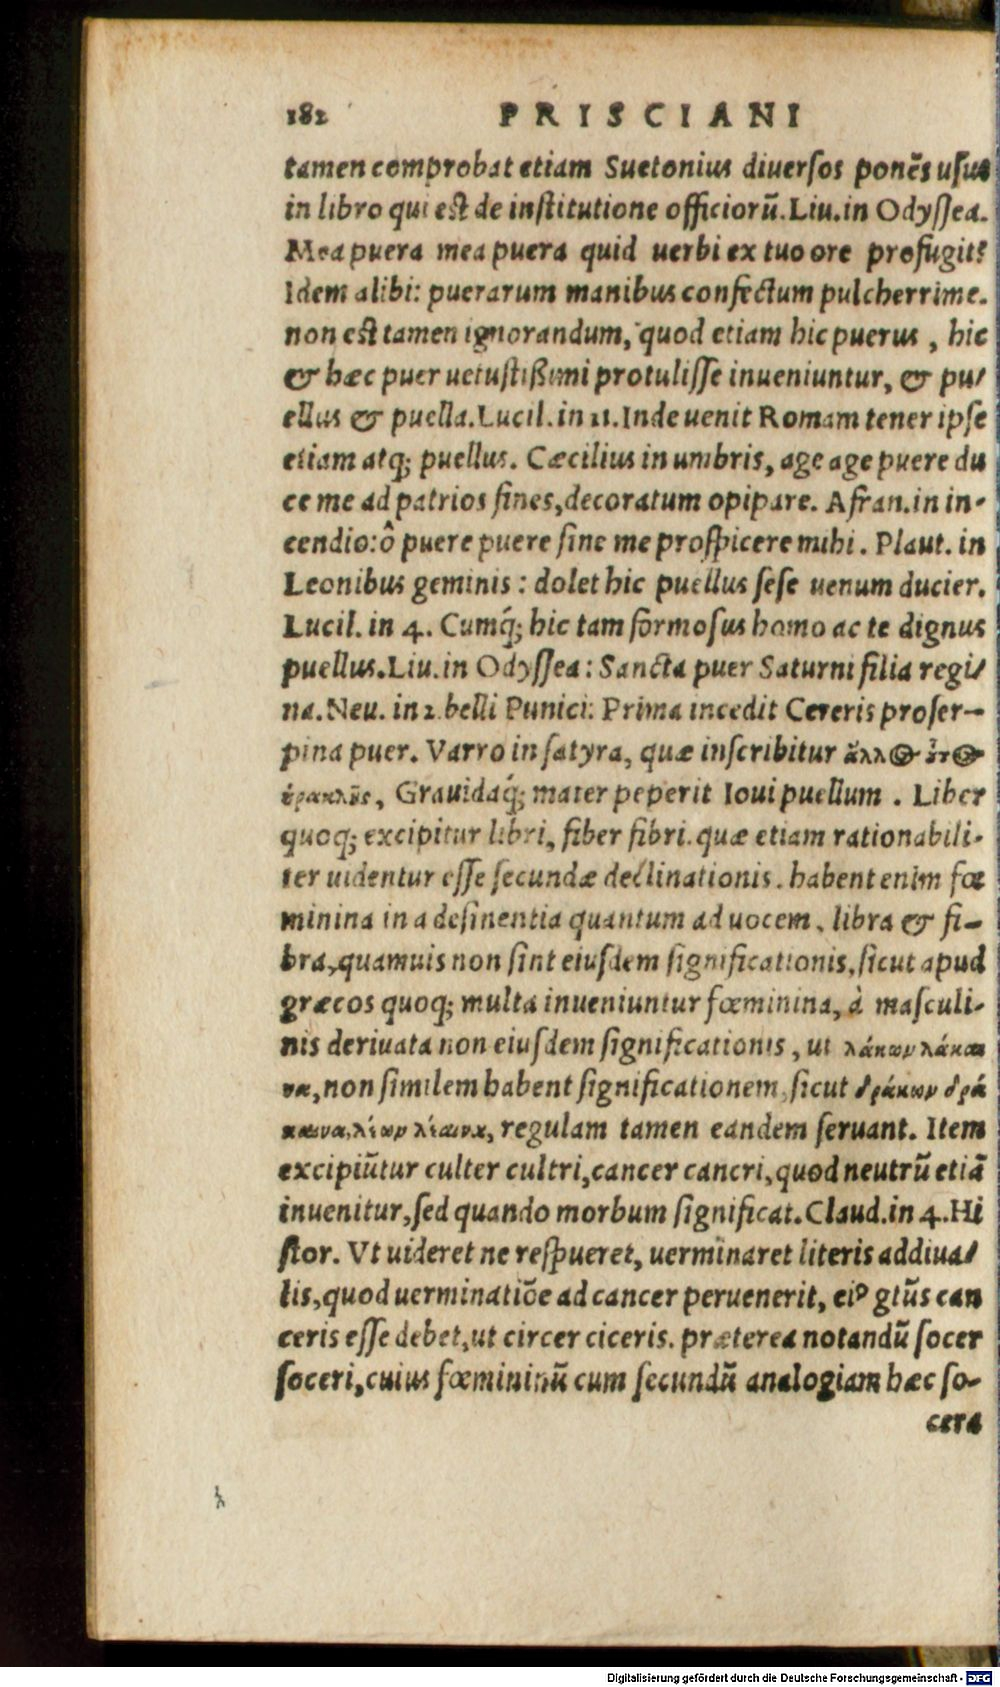 182 PRISCIANI
tamen comprobat etiam Suetonius diuerſos ponẽs uſus
in libro qui eſt de inſtitutione officiorũ. Liu. in Odyſſea.
Mea puera mea puera quid uerbi ex tuo ore profugit?
Idem alibi: puerarum manibus confectum pulcherrime.
non eſt tamen ignorandum, quod etiam hic puerus, hic
& hæc puer uetuſtißimi protuliſſe inueniuntur, & pu/
ellus & puella. Lucil. in 11. Inde uenit Romam tener ipſe
etiam atq; puellus. Cæcilius in umbris, age age puere du
ce me ad patrios fines, decoratum opipare. Afran. in in-
cendio: ô puere puere ſine me proſpicere mihi. Plaut. in
Leonibus geminis: dolet hic puellus ſeſe uenum ducier.
Lucil. in 4. Cumq́; hic tam formoſus homo ac te dignus
puellus. Liu. in Odyſſea: Sancta puer Saturni filia regi/
na. Neu. in 2 belli Punici: Prima incedit Cereris proſer-
pina puer. Varro in ſatyra, quæ inſcribitur ἄλλος οὗτος
ἡρακλῆς, Grauidaq́; mater peperit Ioui puellum. Liber
quoq; excipitur libri, fiber fibri. quæ etiam rationabili-
ter uidentur eſſe ſecundæ declinationis. habent enim fœ
minina in a deſinentia quantum ad uocem, libra & fi-
bra, quamuis non ſint eiuſdem ſignificationis, ſicut apud
græcos quoq; multa inueniuntur fœminina, à maſculi-
nis deriuata non eiuſdem ſignificationis, ut λάκων λάκαι
να, non ſimilem habent ſignificationem, ſicut δράκων δρά
καινα, λέων λέαινα, regulam tamen eandem ſeruant. Item
excipiũtur culter cultri, cancer cancri, quod neutrũ etiã
inuenitur, ſed quando morbum ſignificat. Claud. in 4. Hi
ſtor. Vt uideret ne reſpueret, uerminaret literis addiua/
lis, quod uerminatiõe ad cancer peruenerit, eiꝰ gtũs can
ceris eſſe debet, ut circer ciceris. præterea notandũ ſocer
ſoceri, cuius fœmininũ cum ſecundũ analogiam hæc ſo-
cera
Digitalisierung gefördert durch die Deutsche Forschungsgemeinschaft - DFG